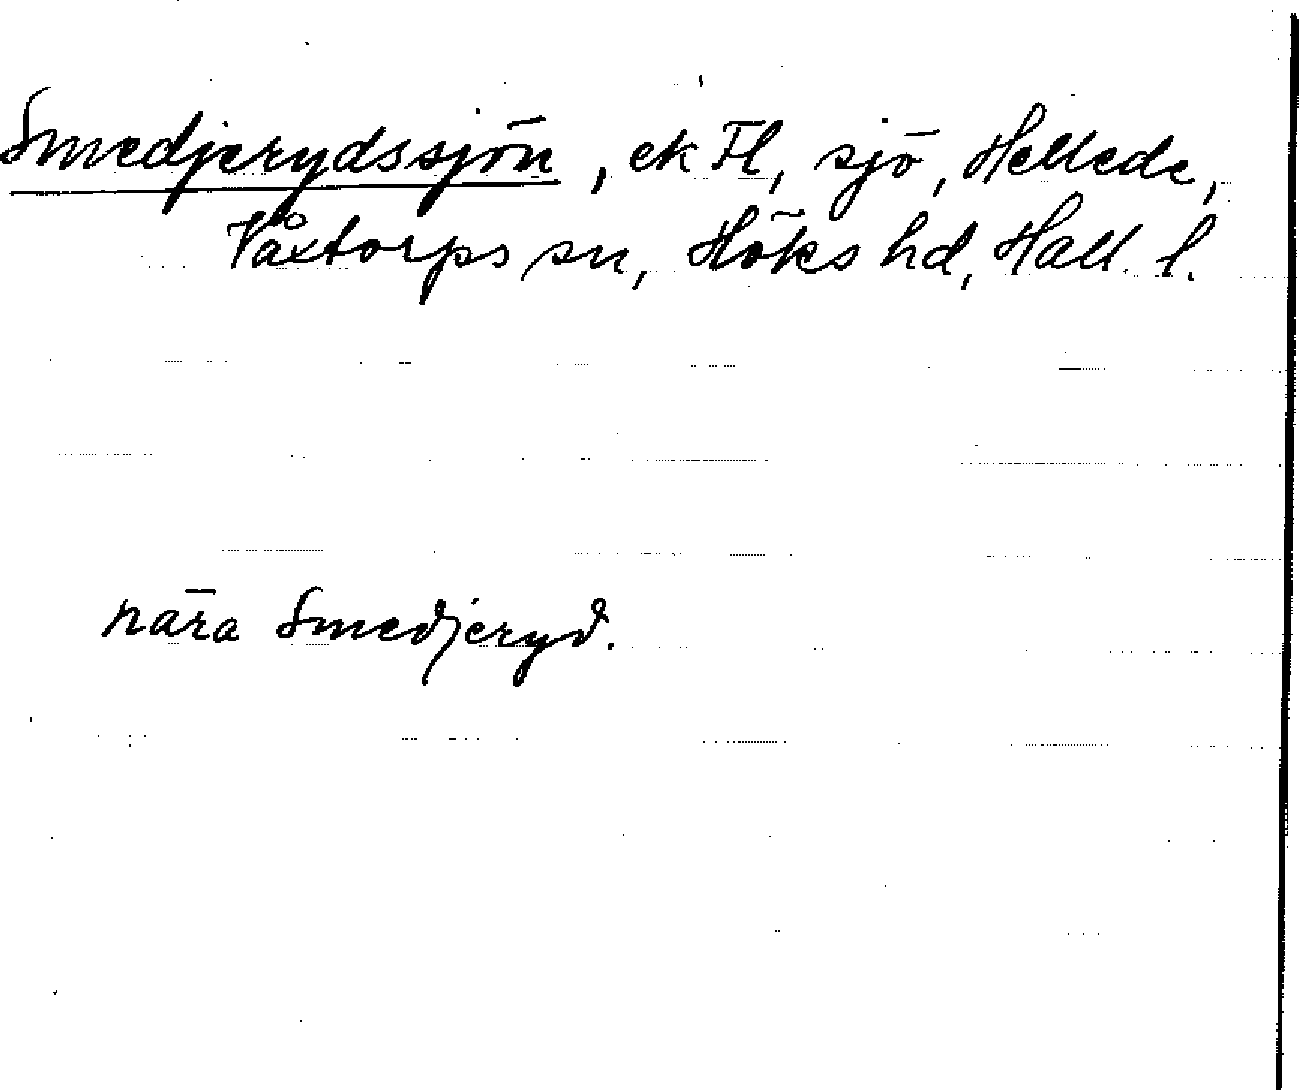 Smedjerydssjön, ek Fl, sjö, Hellede,
Våxtorps sn, Höks hd, Hall. l.
nära Smedjeryd.